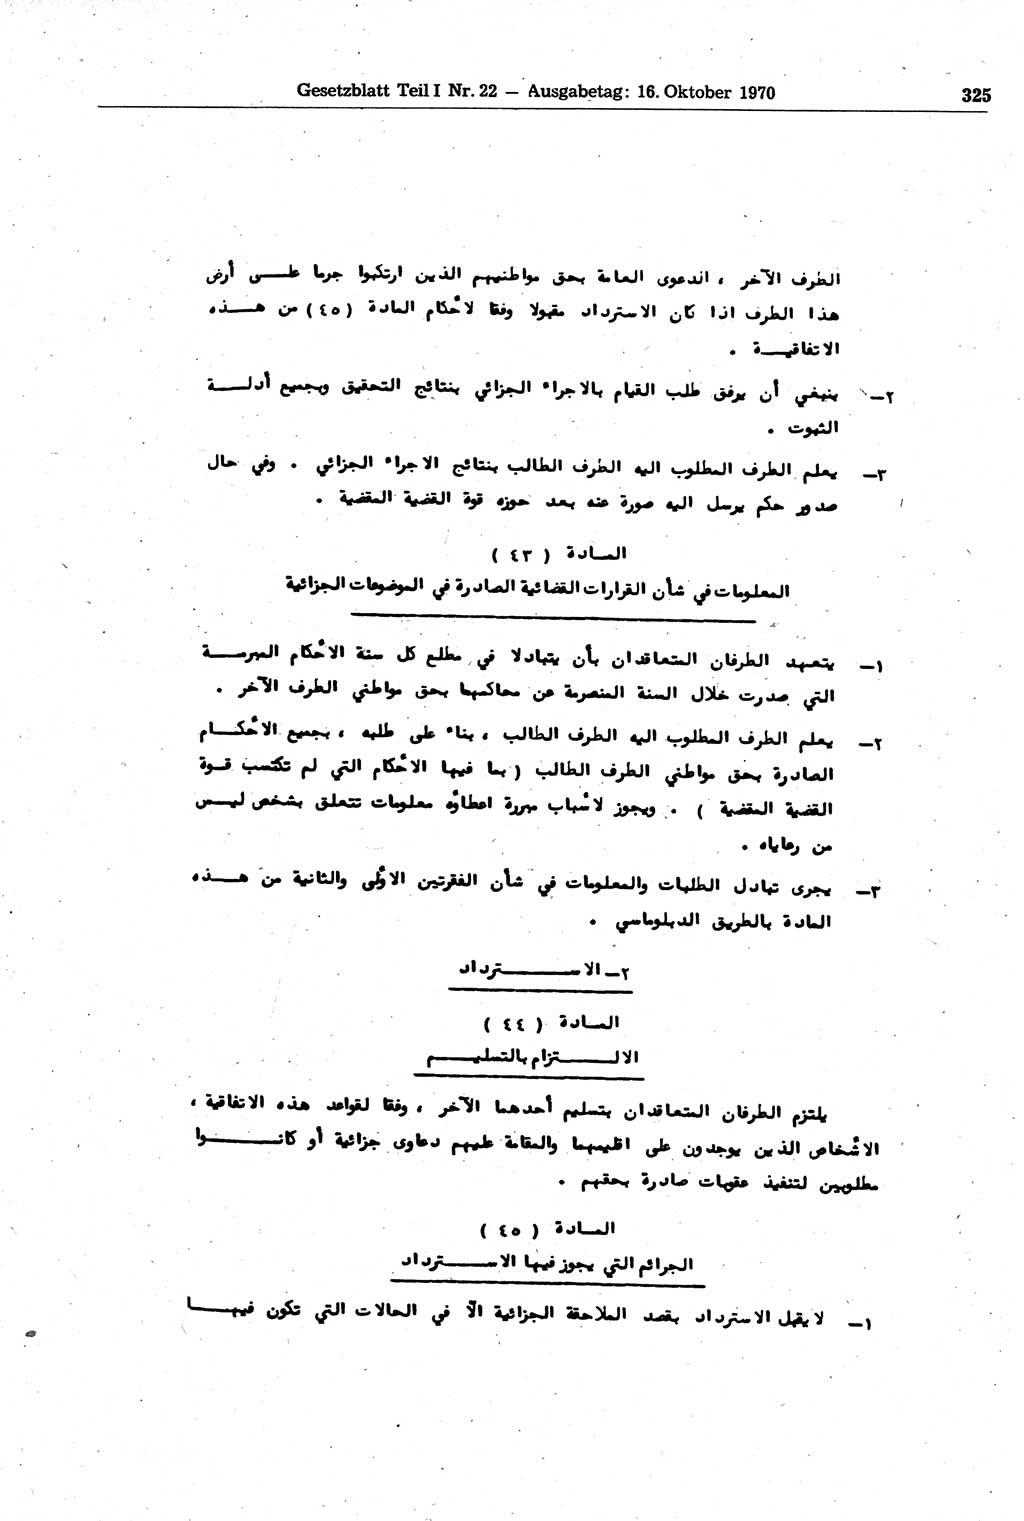 Gesetzblatt Teil I Nr. 22 — Ausgabetag: 16. Oktober 1970 325
الطرف الآخر ، الدعوى العامة بحق مواطنيهم الذين ارتكبوا جرما علـــى أرض
هذا الطرف اذا كان الاسترداد مقبولا وفقا لأحكام المادة (٤٥) من هـــذه
الاتفاقيـــة .
٢— ينبغي أن يرفق طلب القيام بالاجراء الجزائي بنتائج التحقيق وبجميع أدلـــة
الثبوت .
٣— يعلم الطرف المطلوب اليه الطرف الطالب بنتائج الاجراء الجزائي . وفي حال
صدور حكم يرسل اليه صورة عنه بعد حوزه قوة القضية المقضية .
المــادة ( ٤٣ )
المعلومات في شأن القرارات القضائية الصادرة في الموضوعات الجزائية
١— يتعهد الطرفان المتعاقدان بأن يتبادلا في مطلع كل سنة الأحكام المبرمـــة
التي صدرت خلال السنة المنصرمة عن محاكمها بحق مواطني الطرف الآخر .
٢— يعلم الطرف المطلوب اليه الطرف الطالب ، بناء على طلبه ، بجميع الأحكـــام
الصادرة بحق مواطني الطرف الطالب ( بما فيها الأحكام التي لم تكتسب قــوة
القضية المقضية ) . ويجوز لأسباب مبررة اعطاؤه معلومات تتعلق بشخص ليــس
من رعاياه .
٣— يجرى تبادل الطلبات والمعلومات في شأن الفقرتين الأولى والثانية من هـــذه
المادة بالطريق الدبلوماسي .
٢— الاســــــترداد
المــادة ( ٤٤ )
الالـــــتزام بالتسليـــم
يلتزم الطرفان المتعاقدان بتسليم أحدهما الآخر ، وفقا لقواعد هذه الاتفاقية ،
الأشخاص الذين يوجدون على اقليمهما والمقامة عليهم دعاوى جزائية أو كانـــــوا
مطلوبين لتنفيذ عقوبات صادرة بحقهم .
المــادة ( ٤٥ )
الجرائم التي يجوز فيها الاســـــترداد
١— لا يقبل الاسترداد بقصد الملاحقة الجزائية الا في الحالات التي تكون فيهـــا